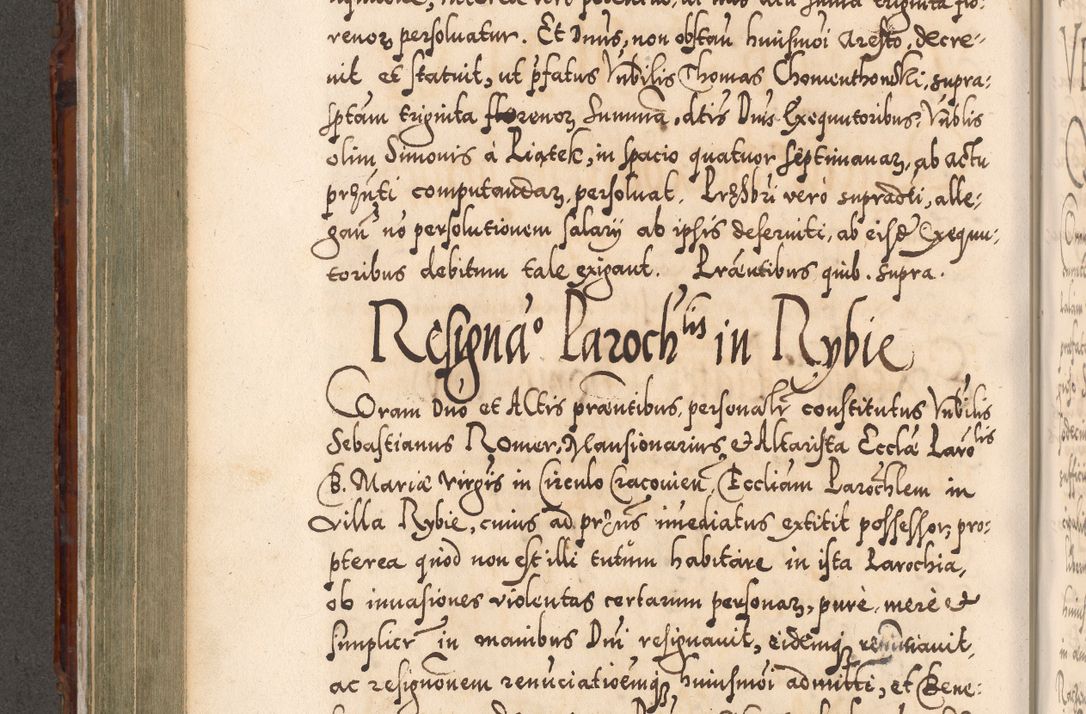 renoꝝ persoluatur. Et Dnus, non obstan̄ huiusmoi Aresto, decre-
uit et statuit, ut p̄fatus Vnbilis Thomas Chomenthowski, supra-
sptam triginta florenoꝝ Summā, dtis Dnis Exequutoribus Vnblis
olim Simonis à Piątek, in spacio quatuor septimanaꝝ, ab actu
pr̄nti computandaꝝ, persoluat. Prȝsbri verò supradti, alle-
gan̄ nō persolutionem salarij ab ipsis deseruiti, ab eisd̄ Exequu-
toribus debitum tale exigant. Præntibus quib. supra.
Resignaō Paroch^lis in Rybie
Coram Dnō et Actis præntibus, personalr̄ constitutus Vnbilis
Sebastianus Romer, Mansionarius, et Altarista Ecclæ Paro^lis
B. Mariæ Virgis in Circulo Cracouien̄, Eccliam Parochlem in
Villa Rybie, cuius ad pr̄ns imediatus extitit possessor, pro-
pterea quod non est illi tutum habitare in ista Parochia,
ob inuasiones violentas certarum personaꝝ, purè, merè et
simplicr̄ in manibus Dni resignauit, eidemq renunciauit,
ac resignōnem renūciatioēmq huiusmoi admitti, et Bene-